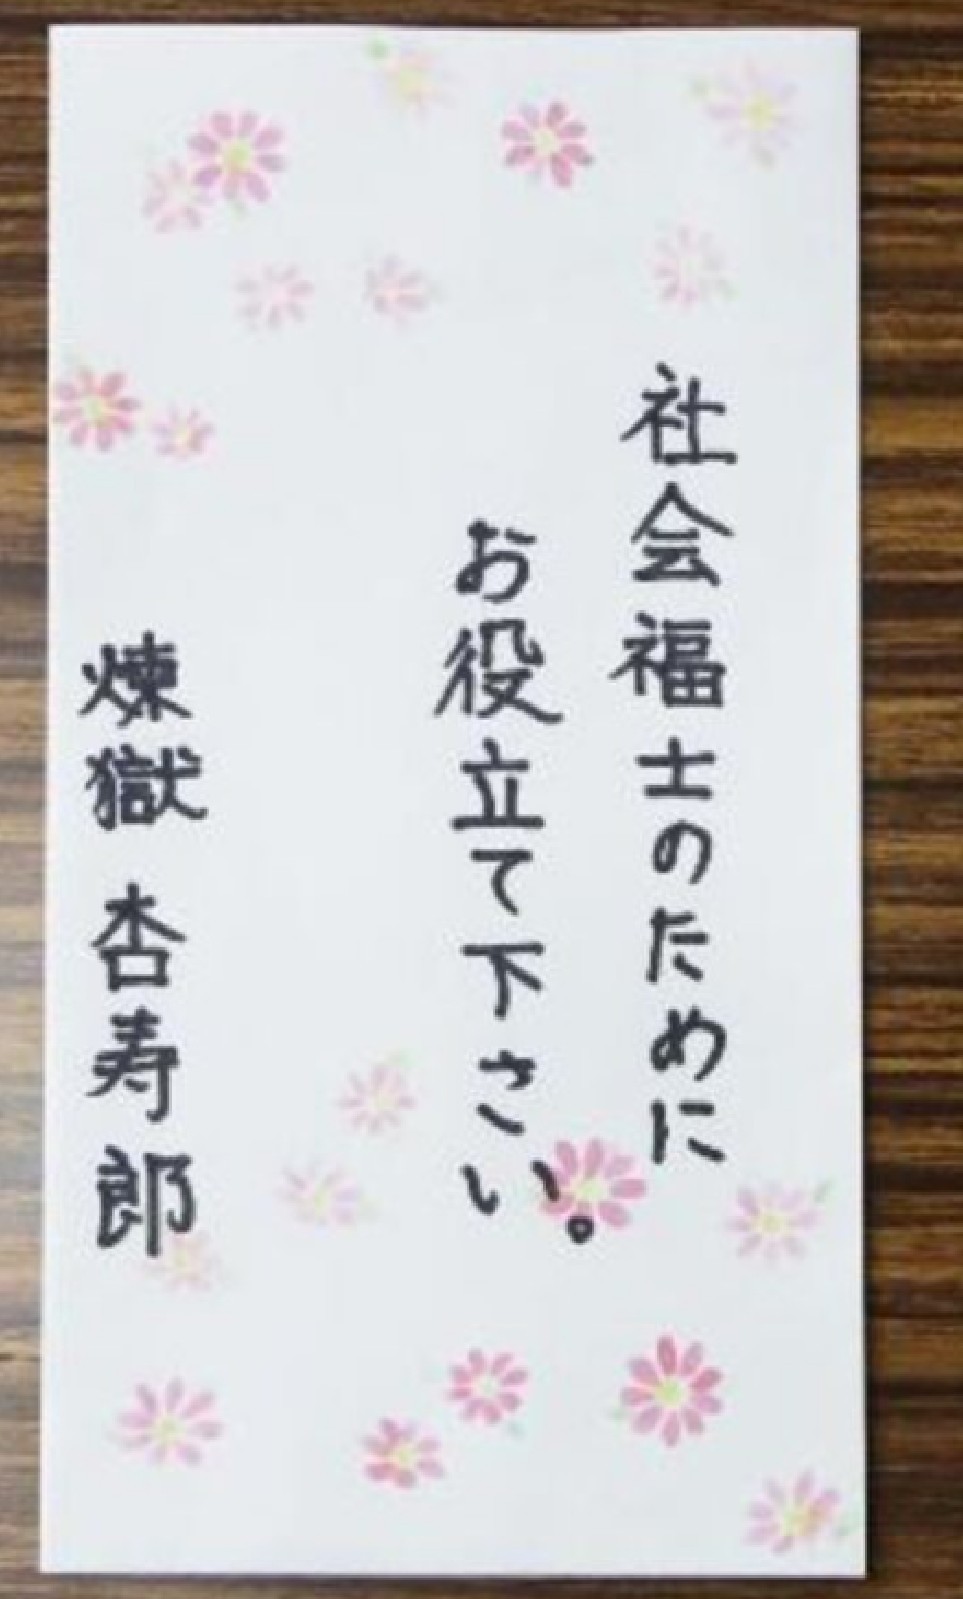 社会福士のために
お役立て下さい。
煉獄 杏寿郎